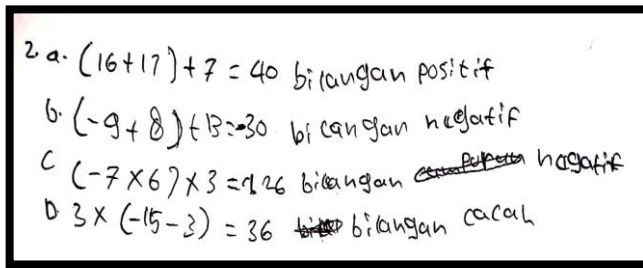 2. a. (16+17)+7 = 40 bilangan positif
b. (-9+8)+13=-30 bilangan negatif
C (-7×6)×3 =126 bilangan negatif
D. 3×(-15-3) = 36 bilangan cacah